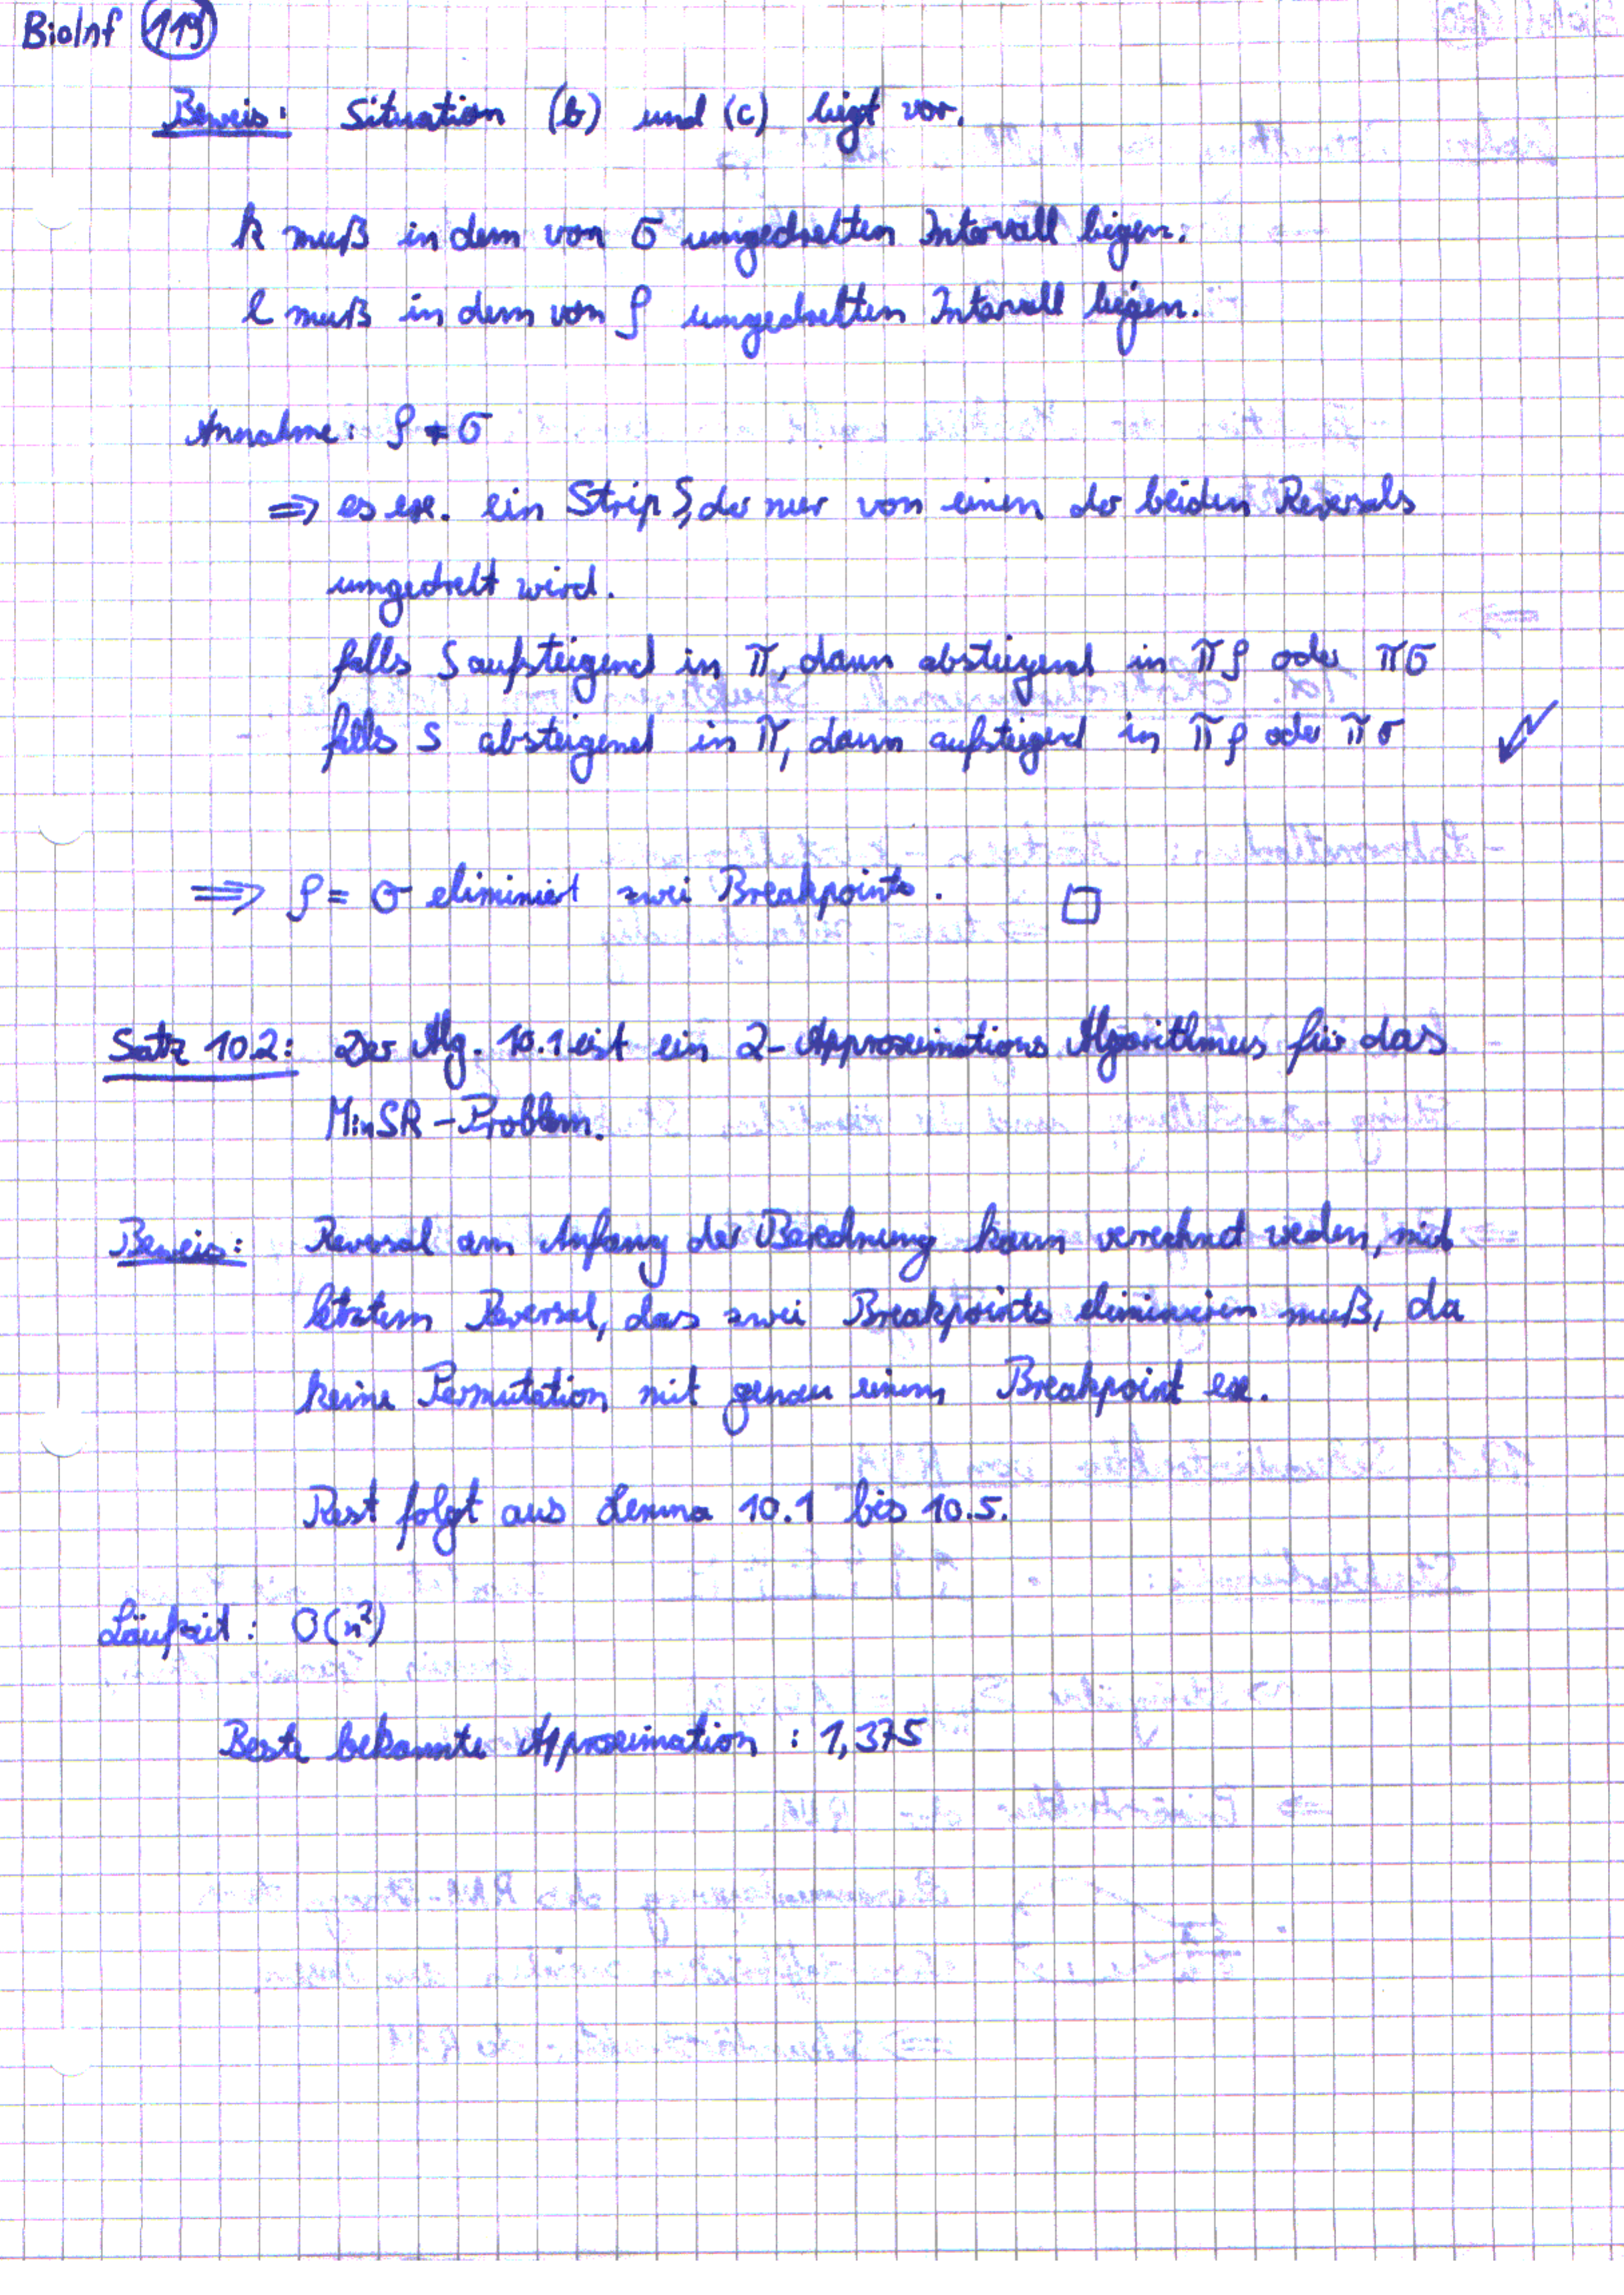 BioInf 119
Beweis: Situation (b) und (c) liegt vor.
k muß in dem von σ umgedrehten Intervall liegen.
l muß in dem von ρ umgedrehten Intervall liegen.
Annahme: ρ ≠ σ
⇒ es ex. ein Strip S, der nur von einem der beiden Reversals
umgedreht wird.
falls S aufsteigend in π, dann absteigend in πρ oder πσ
falls S absteigend in π, dann aufsteigend in πρ oder πσ ↯
⇒ ρ = σ eliminiert zwei Breakpoints. □
Satz 10.2: Der Alg. 10.1 ist ein 2-Approximations Algorithmus für das
MinSR-Problem.
Beweis: Reversal am Anfang der Berechnung kann verrechnet werden, mit
letztem Reversal, das zwei Breakpoints eliminieren muß, da
keine Permutation mit genau einem Breakpoint ex.
Rest folgt aus Lemma 10.1 bis 10.5.
Laufzeit: O(n²)
Beste bekannte Approximation: 1,375